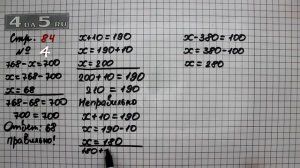 4 на 5.ru
Стр. 84
№ 4
768-x=700
x=768-700
x=68
768-68=700
700=700
Ответ: 68
правильно!
x+10=190
x=190+10
x=200
200+10=190
210=190
Неправильно
x+10=190
x=190-10
x=180
180+
x-380=100
x=380-100
x=280